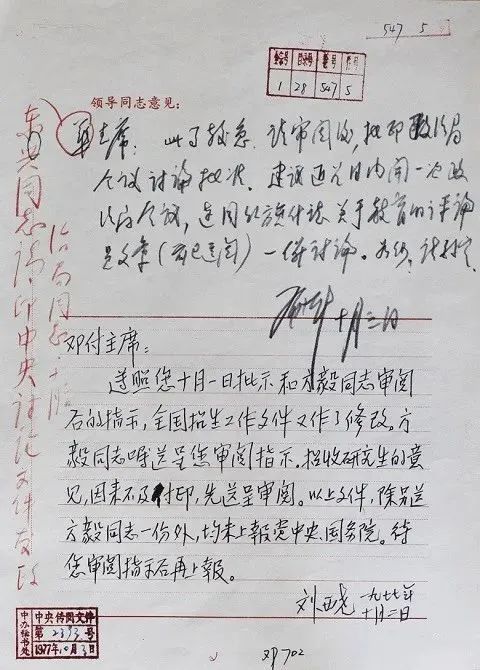 547 5
全宗号 目录号 卷号 件号
1 28 547 5
领导同志意见：
华主席：此事较急，请审阅后，批印政治局
会议讨论批准。建议近几日内开一次政
治局会议，连同
关于教育的评论
文章（前已送阅）一併讨论。
十月三日
东兴同志：请印中央
政
治局同志
邓付主席：
遵照您十月一日批示和方毅同志审阅
后的指示，全国招生工作文件又作了修改，方
毅同志嘱送呈您审阅指示。招收研究生的意
见，因来不及付印，先送呈审阅。以上文件，除另送
方毅同志一份外，均未上報党中央、国务院。待
您审阅指示后再上報。
刘西尧 一九七七年
十月三日
中办秘书处
中央传阅文件
第2393号
1977年10月3日
邓702